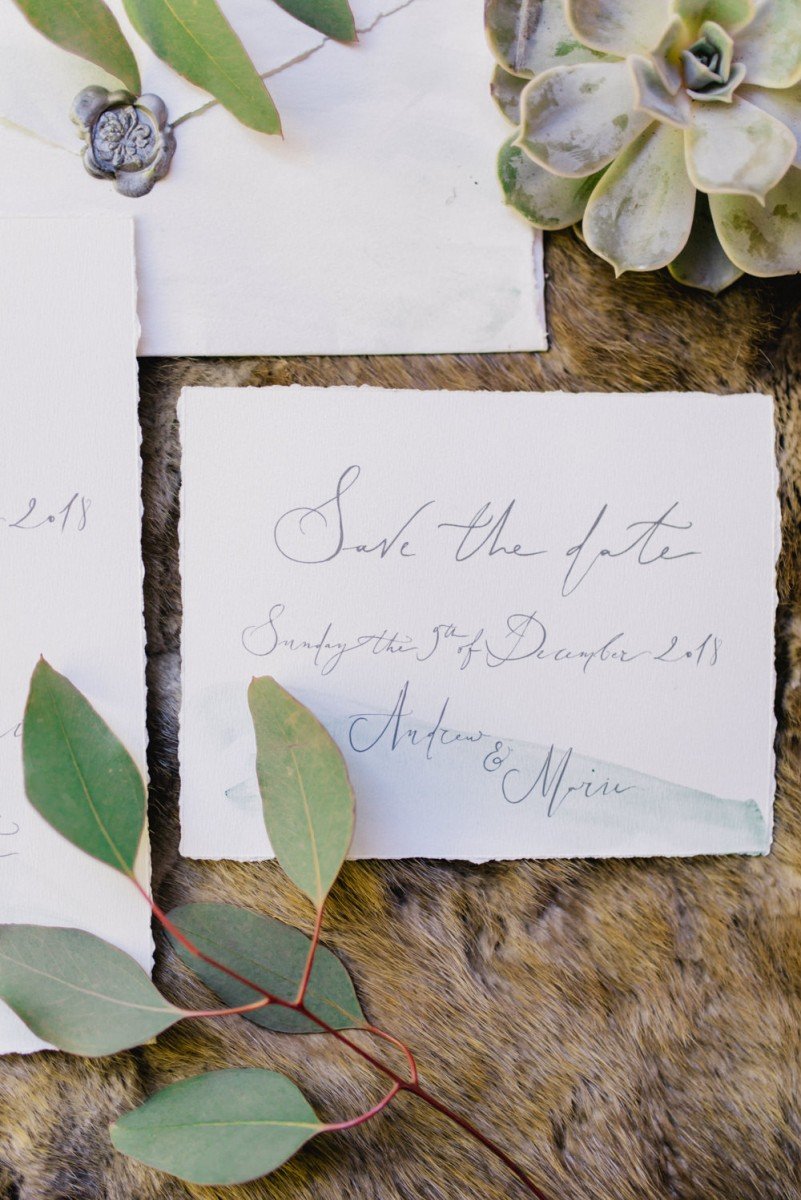 2018
Save the date
Sunday the 9th of December 2018
Andrew & Marie